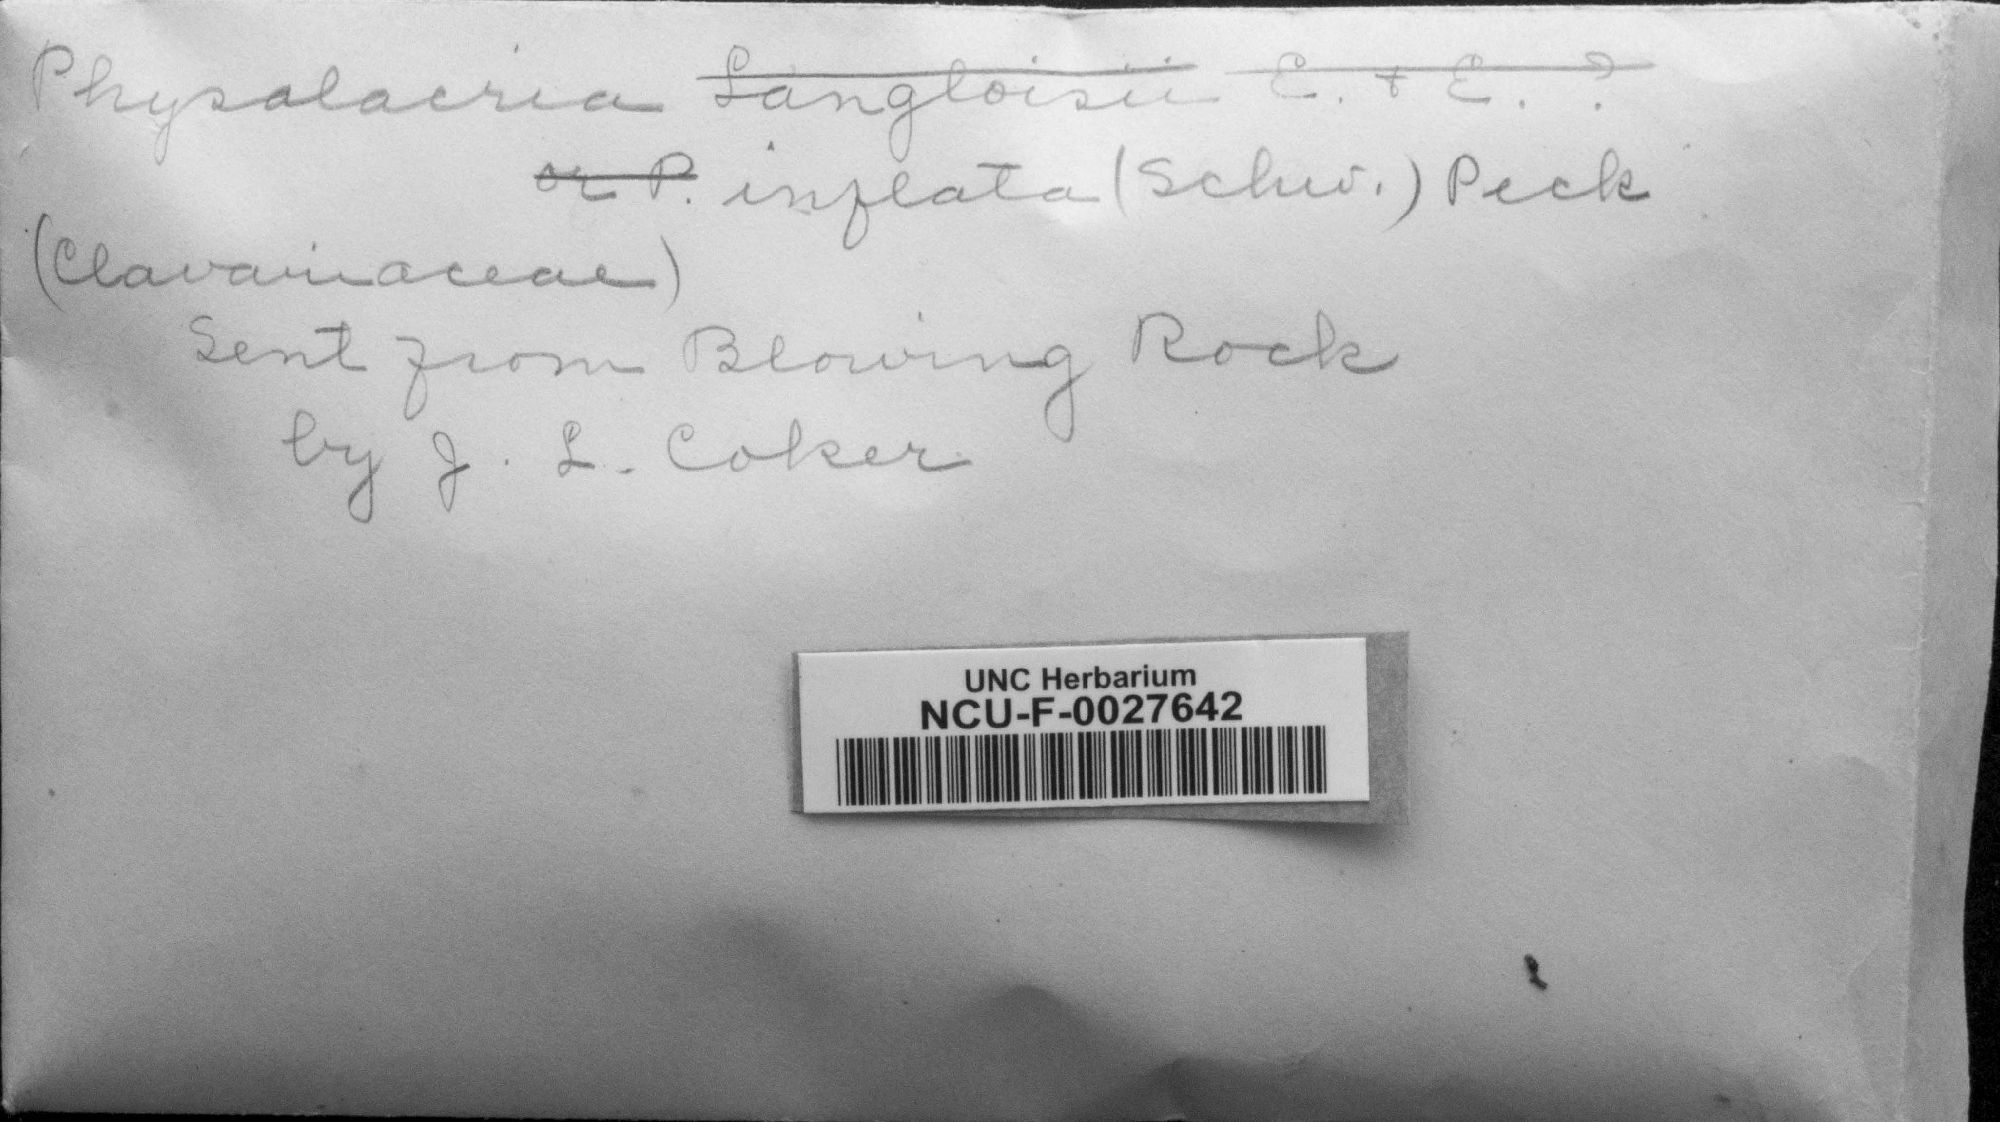 Physalacria Langloisii E. + E. ?
or P. inflata (Schw.) Peck
(Clavariaceae)
Sent from Blowing Rock
by J. L. Coker
UNC Herbarium
NCU-F-0027642